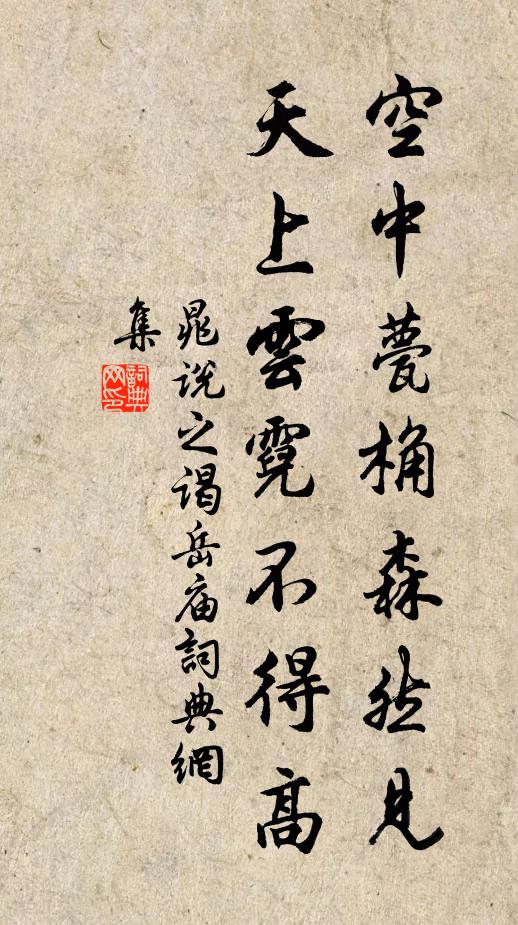 空中甍桷森然見
天上雲霓不得高
晁說之謁岳庙詞典網
集
詞典
网印